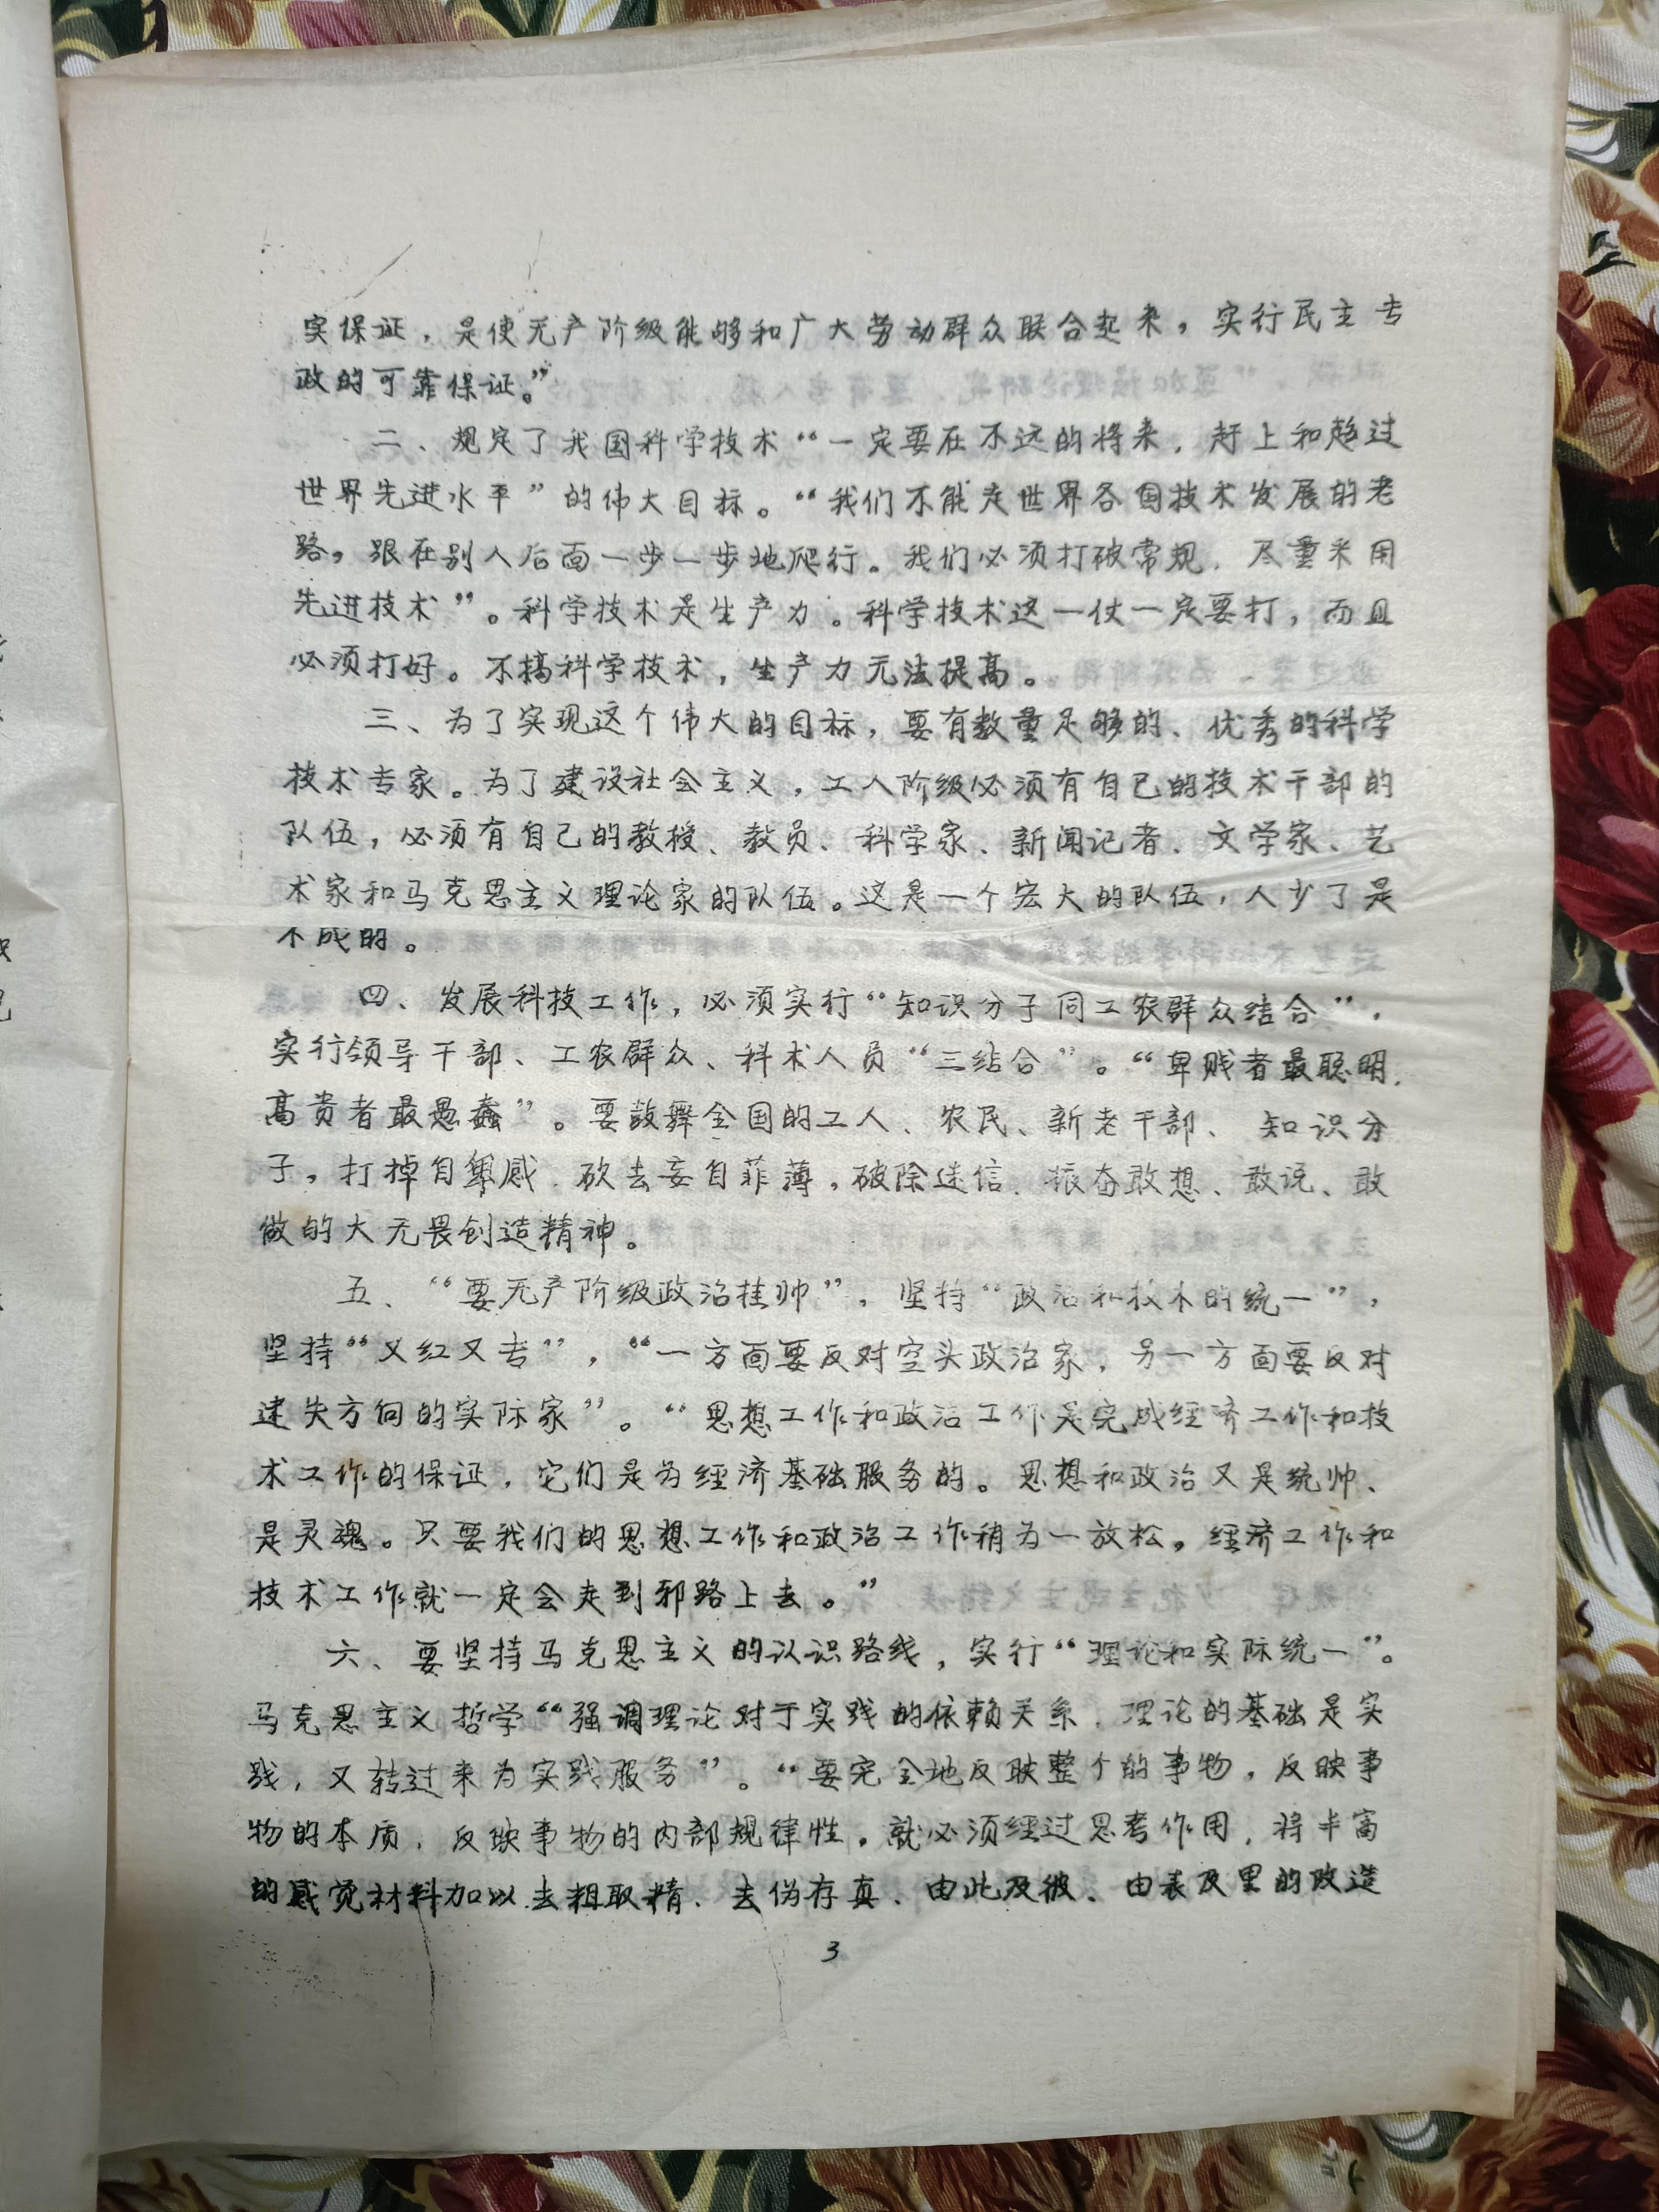 实保证，是使无产阶级能够和广大劳动群众联合起来，实行民主专
政的可靠保证。”
二、规定了我国科学技术“一定要在不远的将来，赶上和超过
世界先进水平”的伟大目标。“我们不能走世界各国技术发展的老
路，跟在别人后面一步一步地爬行。我们必须打破常规，尽量采用
先进技术”。科学技术是生产力。科学技术这一仗一定要打，而且
必须打好。不搞科学技术，生产力无法提高。
三、为了实现这个伟大的目标，要有数量足够的、优秀的科学
技术专家。为了建设社会主义，工人阶级必须有自己的技术干部的
队伍，必须有自己的教授、教员、科学家、新闻记者、文学家、艺
术家和马克思主义理论家的队伍。这是一个宏大的队伍，人少了是
不成的。
四、发展科技工作，必须实行“知识分子同工农群众结合”，
实行领导干部、工农群众、科术人员“三结合”。“卑贱者最聪明，
高贵者最愚蠢”。要鼓舞全国的工人、农民、新老干部、知识分
子，打掉自卑感，砍去妄自菲薄，破除迷信，振奋敢想、敢说、敢
做的大无畏创造精神。
五、“要无产阶级政治挂帅”，坚持“政治和技术的统一”，
坚持“又红又专”，“一方面要反对空头政治家，另一方面要反对
迷失方向的实际家”。“思想工作和政治工作是完成经济工作和技
术工作的保证，它们是为经济基础服务的。思想和政治又是统帅、
是灵魂。只要我们的思想工作和政治工作稍为一放松，经济工作和
技术工作就一定会走到邪路上去。”
六、要坚持马克思主义的认识路线，实行“理论和实际统一”。
马克思主义哲学“强调理论对于实践的依赖关系，理论的基础是实
践，又转过来为实践服务”。“要完全地反映整个的事物，反映事
物的本质，反映事物的内部规律性，就必须经过思考作用，将丰富
的感觉材料加以去粗取精、去伪存真、由此及彼、由表及里的改造
3